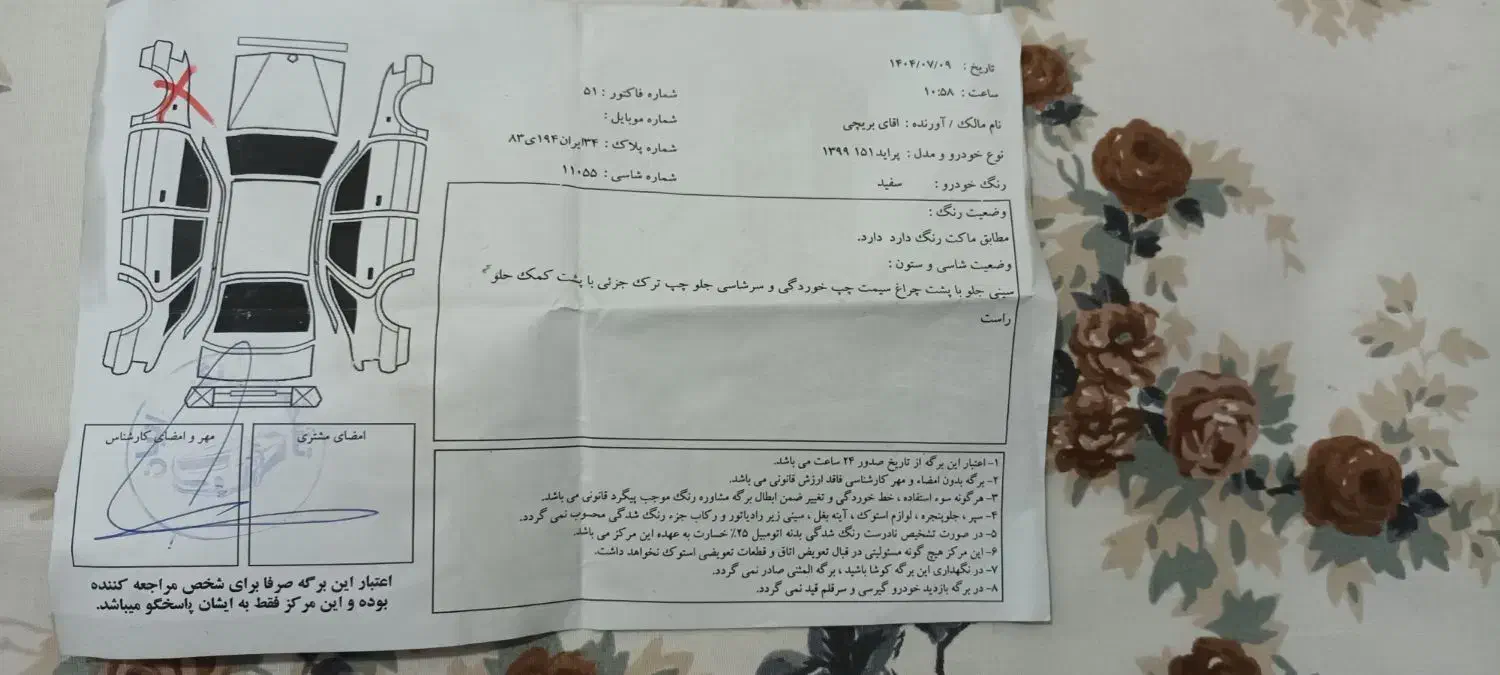 تاریخ : ۱۴۰۴/۰۷/۰۹
ساعت : ۱۰:۵۸
شماره فاکتور : ۵۱
نام مالک / آورنده : اقای بریچی
شماره موبایل :
نوع خودرو و مدل : پراید ۱۵۱ ۱۳۹۹
شماره پلاک : ۳۴ایران۱۹۴ی۸۳
رنگ خودرو : سفید
شماره شاسی : ۱۱۰۵۵
وضعیت رنگ :
مطابق ماکت رنگ دارد دارد.
وضعیت شاسی و ستون :
سینی جلو با پشت چراغ سیمت چپ خوردگی و سرشاسی جلو چپ ترک جزئی با پشت کمک جلو
راست
۱- اعتبار این برگه از تاریخ صدور ۲۴ ساعت می باشد.
۲- برگه بدون امضاء و مهر کارشناسی فاقد ارزش قانونی می باشد.
۳- هرگونه سوء استفاده ، خط خوردگی و تغییر ضمن ابطال برگه مشاوره رنگ موجب پیگرد قانونی می باشد.
۴- سپر ، جلوپنجره ، لوازم استوک ، آینه بغل ، سینی زیر رادیاتور و رکاب جزء رنگ شدگی محسوب نمی گردد.
۵- در صورت تشخیص نادرست رنگ شدگی بدنه اتومبیل ۲۵٪ خسارت به عهده این مرکز می باشد.
۶- این مرکز هیچ گونه مسئولیتی در قبال تعویض اتاق و قطعات تعویضی استوک نخواهد داشت.
۷- در نگهداری این برگه کوشا باشید ، برگه المثنی صادر نمی گردد.
۸- در برگه بازدید خودرو گیرسی و سرقلم قید نمی گردد.
امضای مشتری
مهر و امضای کارشناس
اعتبار این برگه صرفا برای شخص مراجعه کننده
بوده و این مرکز فقط به ایشان پاسخگو میباشد.